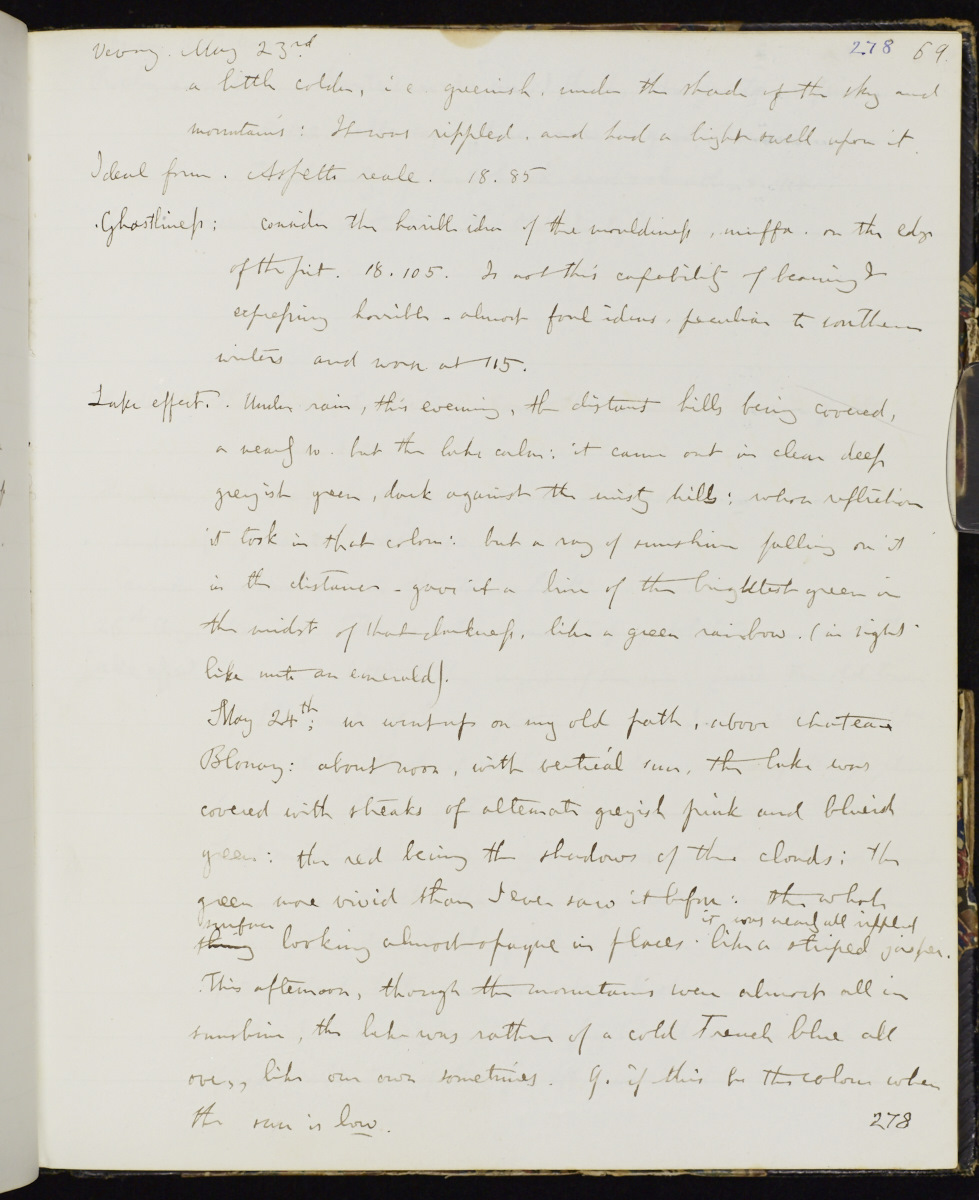 Vevay. May 23rd. 278 69.
a little colder, i e greenish, under the shade of the sky and
mountains: It was rippled, and had a light swell upon it.
Ideal form. Aspetto reale. 18. 85
Ghastliness: consider the horrible idea of the mouldiness, muffa. on the edge
of the pit. 18. 105. Is not this capability of bearing &
expressing horrible - almost foul ideas, peculiar to southern
writers and worse at 115.
Lake effect. Under rain, this evening, the distant hills being covered,
or nearly so. but the lake calm: it came out in clear deep
greyish green, dark against the misty hills: whose reflection
it took in that colour: but a ray of sunshine falling on it
in the distance - gave it a line of the brightest green in
the midst of that darkness, like a green rainbow. (in sight
like unto an emerald).
May 24th: we went up on my old path, above chateau
Blonay: about noon, with vertical sun, the lake was
covered with streaks of alternate greyish pink and blueish
green: the red being the shadows of the clouds; the
green more vivid than I ever saw it before: the whole
surface it was nearly all rippled
thing looking almost opaque in places. like a striped jasper.
This afternoon, though the mountains were almost all in
sunshine, the lake was rather of a cold French blue all
over, like our own sometimes. Q. if this be the colour when
the sun is low. 278